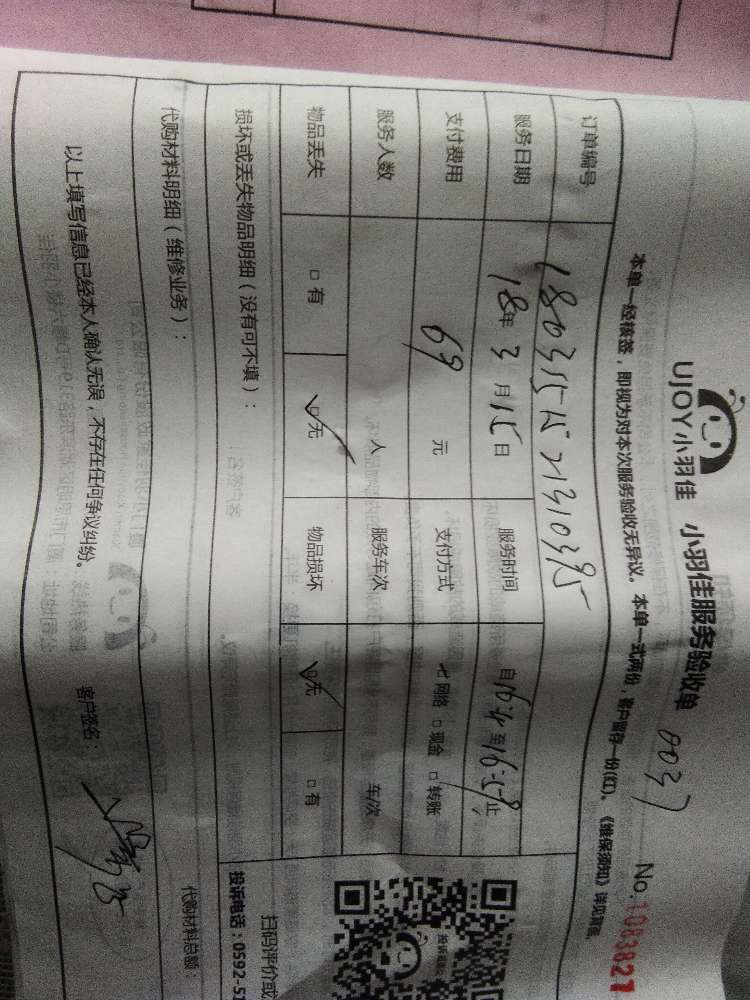 UJOY小羽佳 小羽佳服务验收单 0037
No.1083821
本单一经核签，即视为对本次服务验收无异议。本单一式两份，客户留存一份(红)。《维保须知》详见背面。
订单编号
服务日期 18年3月15日 服务时间
支付费用 69 元 支付方式 网络 □现金 □转账
服务人数 人 服务车次 车次
物品丢失 □有 □无 物品损坏 □无 □有
损坏或丢失物品明细（没有可不填）：
扫码评价或
投诉电话：0592-5
代购材料明细（维修业务）： 代购材料总额：
以上填写信息已经本人确认无误，不存在任何争议纠纷。 客户签名：